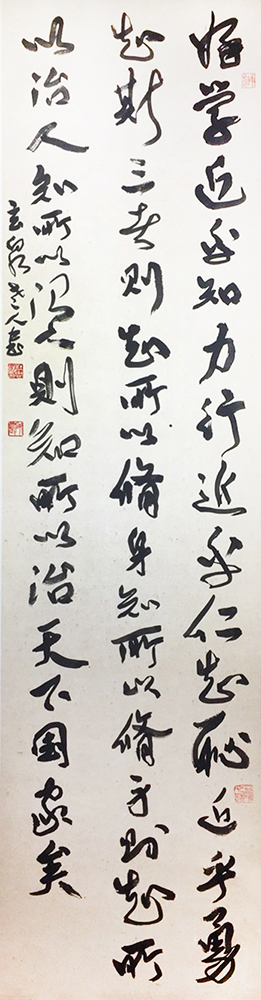 好学近乎知力行近乎仁知恥近乎勇
知斯三者则知所以脩身知所以脩身则知所
以治人知所以治人则知所以治天下国家矣